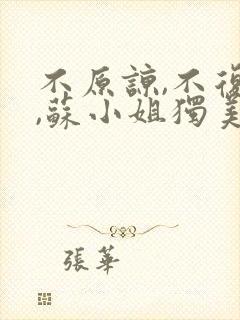 不原諒,不復
,蘇小姐獨美
張華